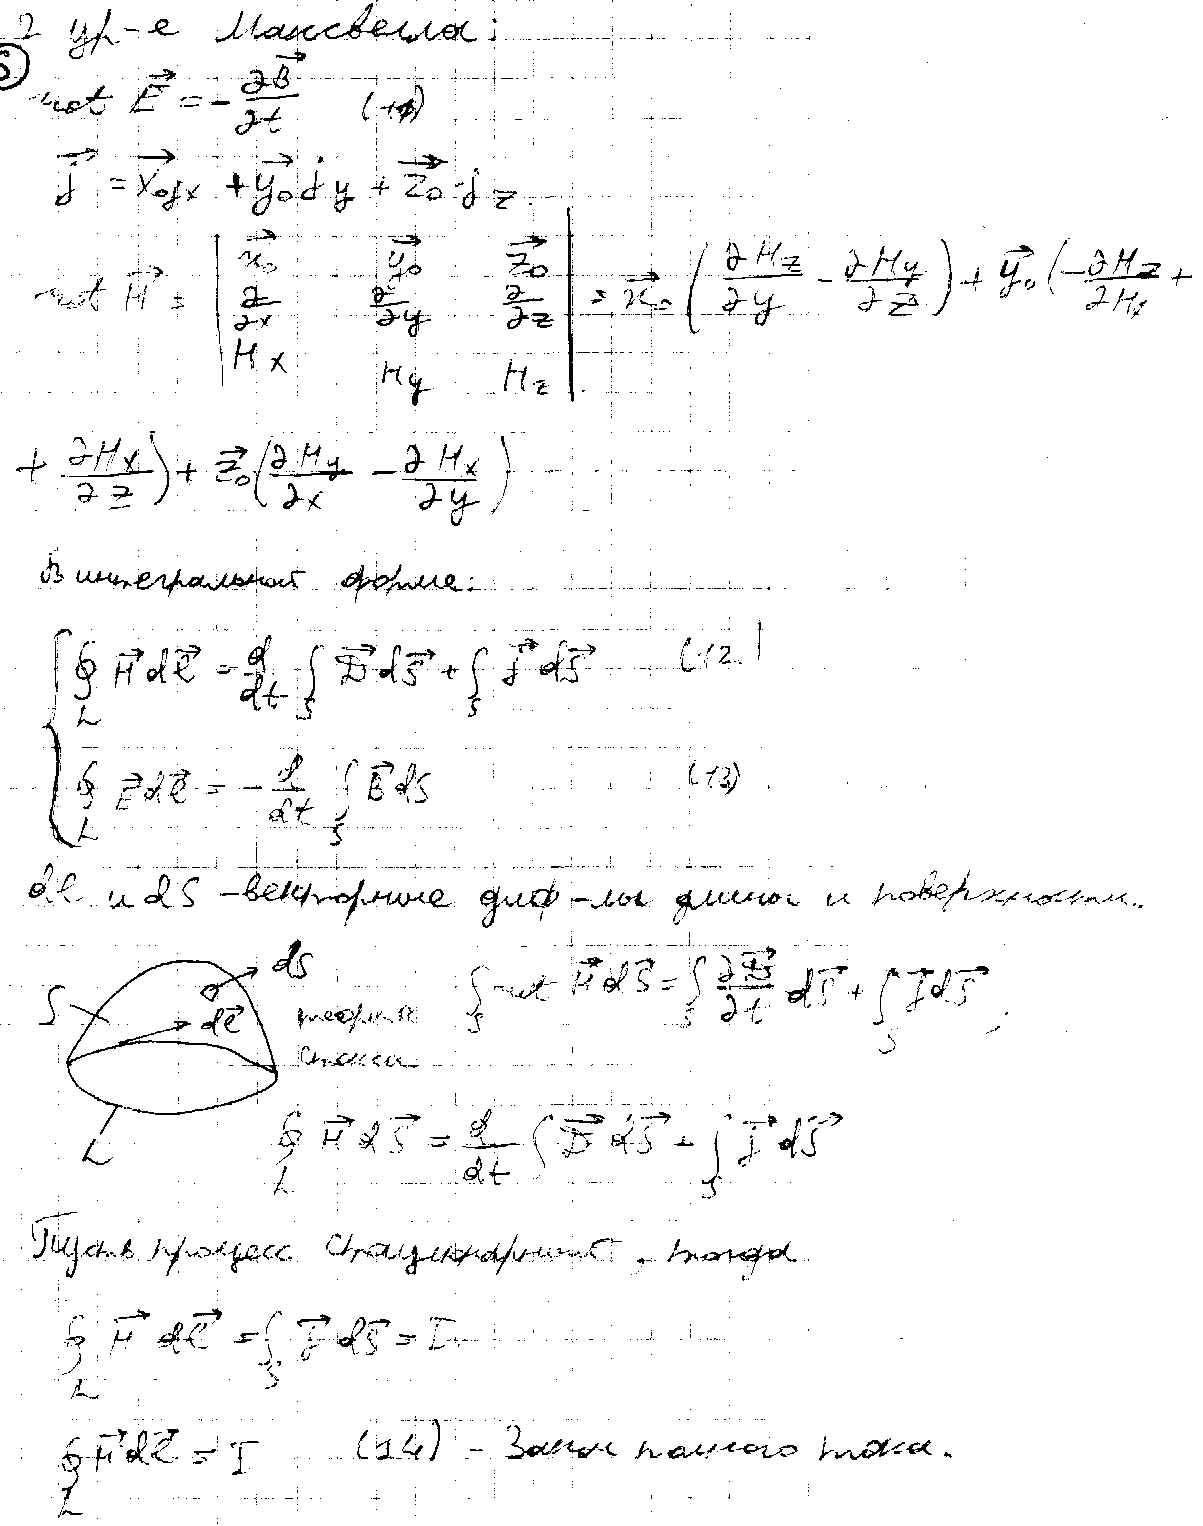 2 ур-е Максвелла:
6
rot E⃗ = - ∂B⃗/∂t (11)
j⃗ = x⃗₀jx + y⃗₀jy + z⃗₀·jz
rot H⃗ = | x⃗₀ y⃗₀ z⃗₀ ; ∂/∂x ∂/∂y ∂/∂z ; Hx Hy Hz | = x⃗₀ (∂Hz/∂y - ∂Hy/∂z) + y⃗₀ (-∂Hz/∂Hx +
+ ∂Hx/∂z) + z⃗₀ (∂Hy/∂x - ∂Hx/∂y)
В интегральной форме:
∮L H⃗ dℓ⃗ = d/dt ∫S D⃗ dS⃗ + ∫S j⃗ dS⃗ (12)
∮L E⃗ dℓ⃗ = - d/dt ∫S B⃗ dS (13)
dℓ и dS - векторные диф-лы длины и поверхности.
S dS dℓ⃗ L
теорема
Стокса
∫S rot H⃗ dS⃗ = ∫S ∂D⃗/∂t dS⃗ + ∫S j⃗ dS⃗ ;
∮L H⃗ dS⃗ = d/dt ∫ D⃗ dS⃗ - ∫S j⃗ dS⃗
Пусть процесс стационарный, тогда
∮L H⃗ dℓ⃗ = ∫S j⃗ dS⃗ = I
∮L H⃗ dℓ⃗ = I (14) - Закон полного тока.